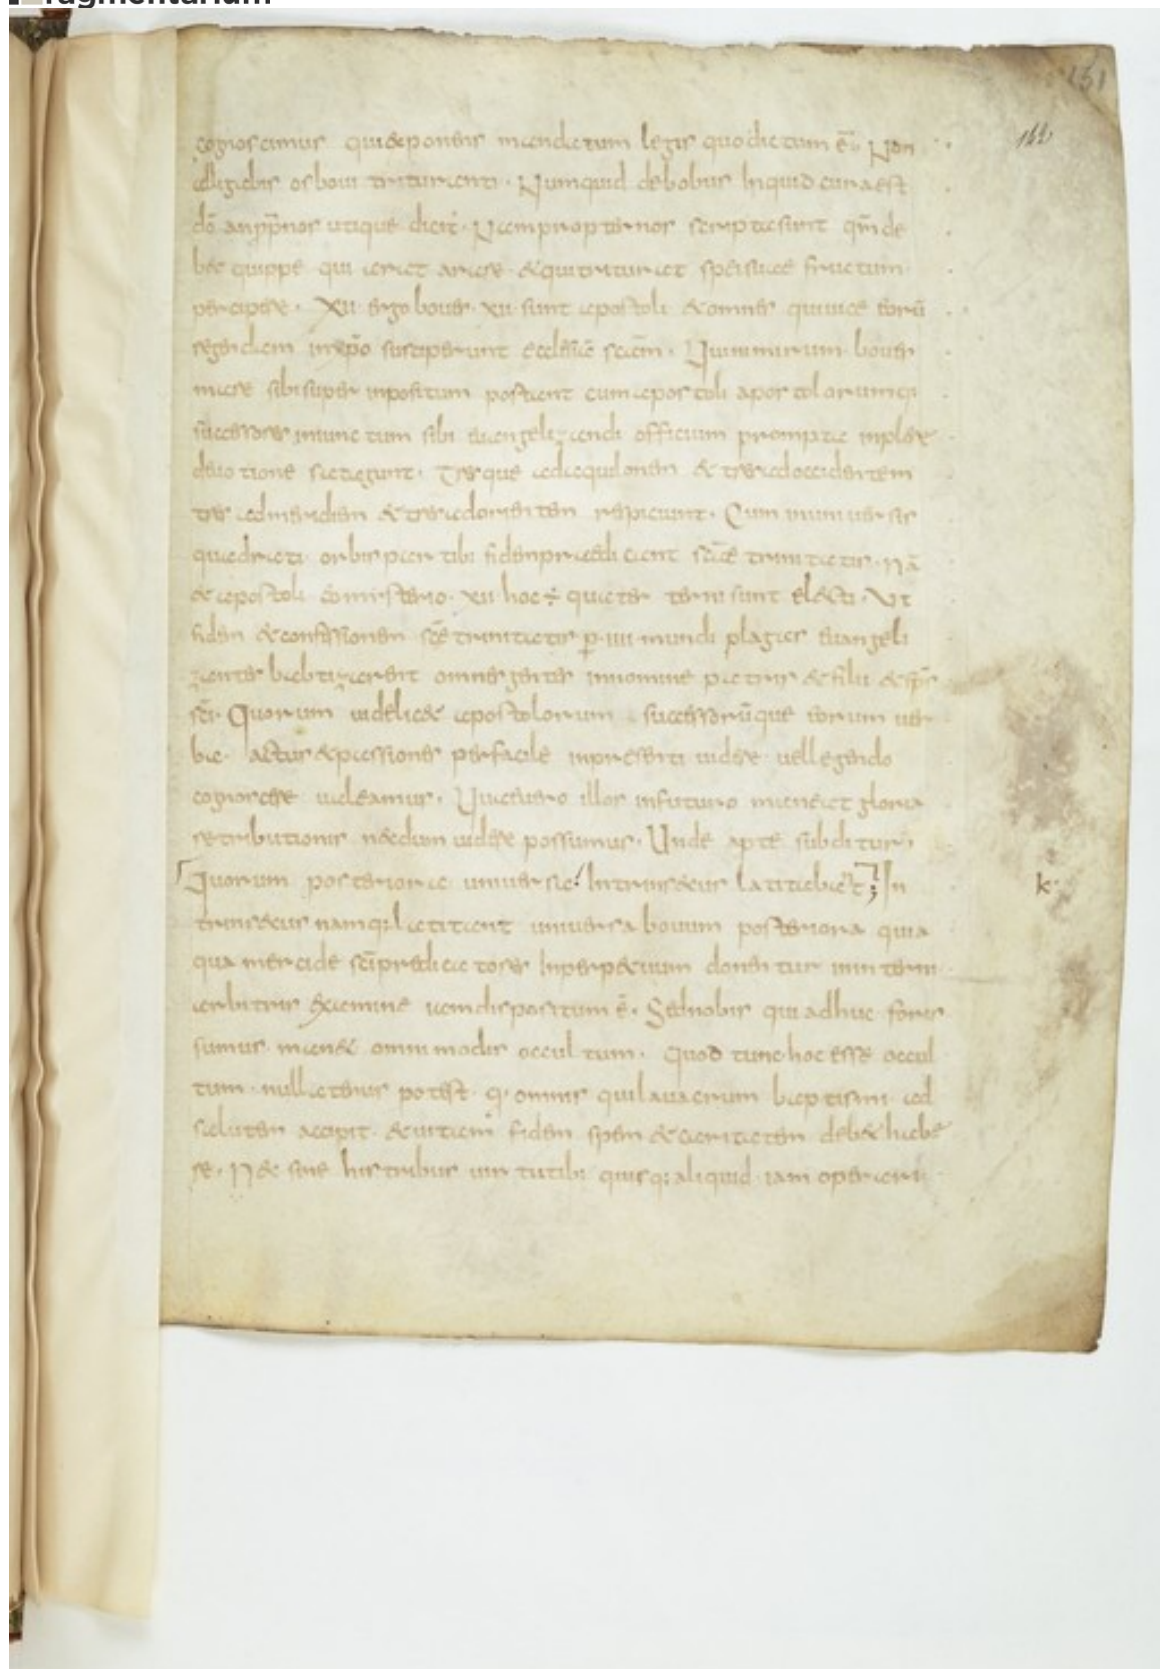 fragmentarium
151
142
cognoscimus qui exponens mandatum legis quo dictum ē Non
alligabis os boui trituranti · Numquid de bobus Inquid cura est
dō an ꝓp̄ nos utique dicit · Nam propter nos scripta sunt qm̄ de
bet quippe qui arat arare · & qui triturat spei suae fructum
percipere · XII ergo boues · XII · sunt apostoli & omnes qui uice eorū
regendam in xp̄o susceperunt ecclesiae sc̄am · Qui nimirum boues
mare sibi super inpositum portant cum apostoli apostolorumq;
successores iniunctum sibi euangelizandi officium prompta inplere
deuotione satagunt · Tres que ad aquilonem & tres ad occidentem
tres ad meridiem & tres ad orientem respiciunt · Cum in uniuersis
quadrati orbis partibus fidem praedicant sc̄ae trinitatis · Nā
& apostoli eo misterio · XII · hoc ÷ quater terni sunt electi · Ut
fidem & confessionem sc̄e trinitatis p̱ · IIII · mundi plagas euangeli
zantes babtizarent omnes gentes in nomine patris & filii & sp̄s
sc̄i · Quorum uidelic& apostolorum successorūque eorum uer
ba · actus & passiones perfacile in presenti uidere · uel legendo
cognoscere ualeamus · Quae uero illos in futuro maneat gloria
retributionis necdum uidere possumus · Unde apte subditur ·
Quorum posteriora uniuersa Intrinsecus latitabāt ; In
trinsecus namq; latitant uniuersa bouum posteriora quia
qua mercede sc̄i predicatores Inperp&uum donentur in interni
arbitris examine iam dispositum ē · Sed nobis qui adhuc foris
sumus man& omnimodis occultum · Quod tunc hoc esse occul
tum · nullatenus potest · q; omnis qui lauacrum baptismi ad
salutem accipit · & uitam fidem spem & caritatem deb& habe
re · N& sine his tribus uirtutib; quisq; aliquid iam operari
k